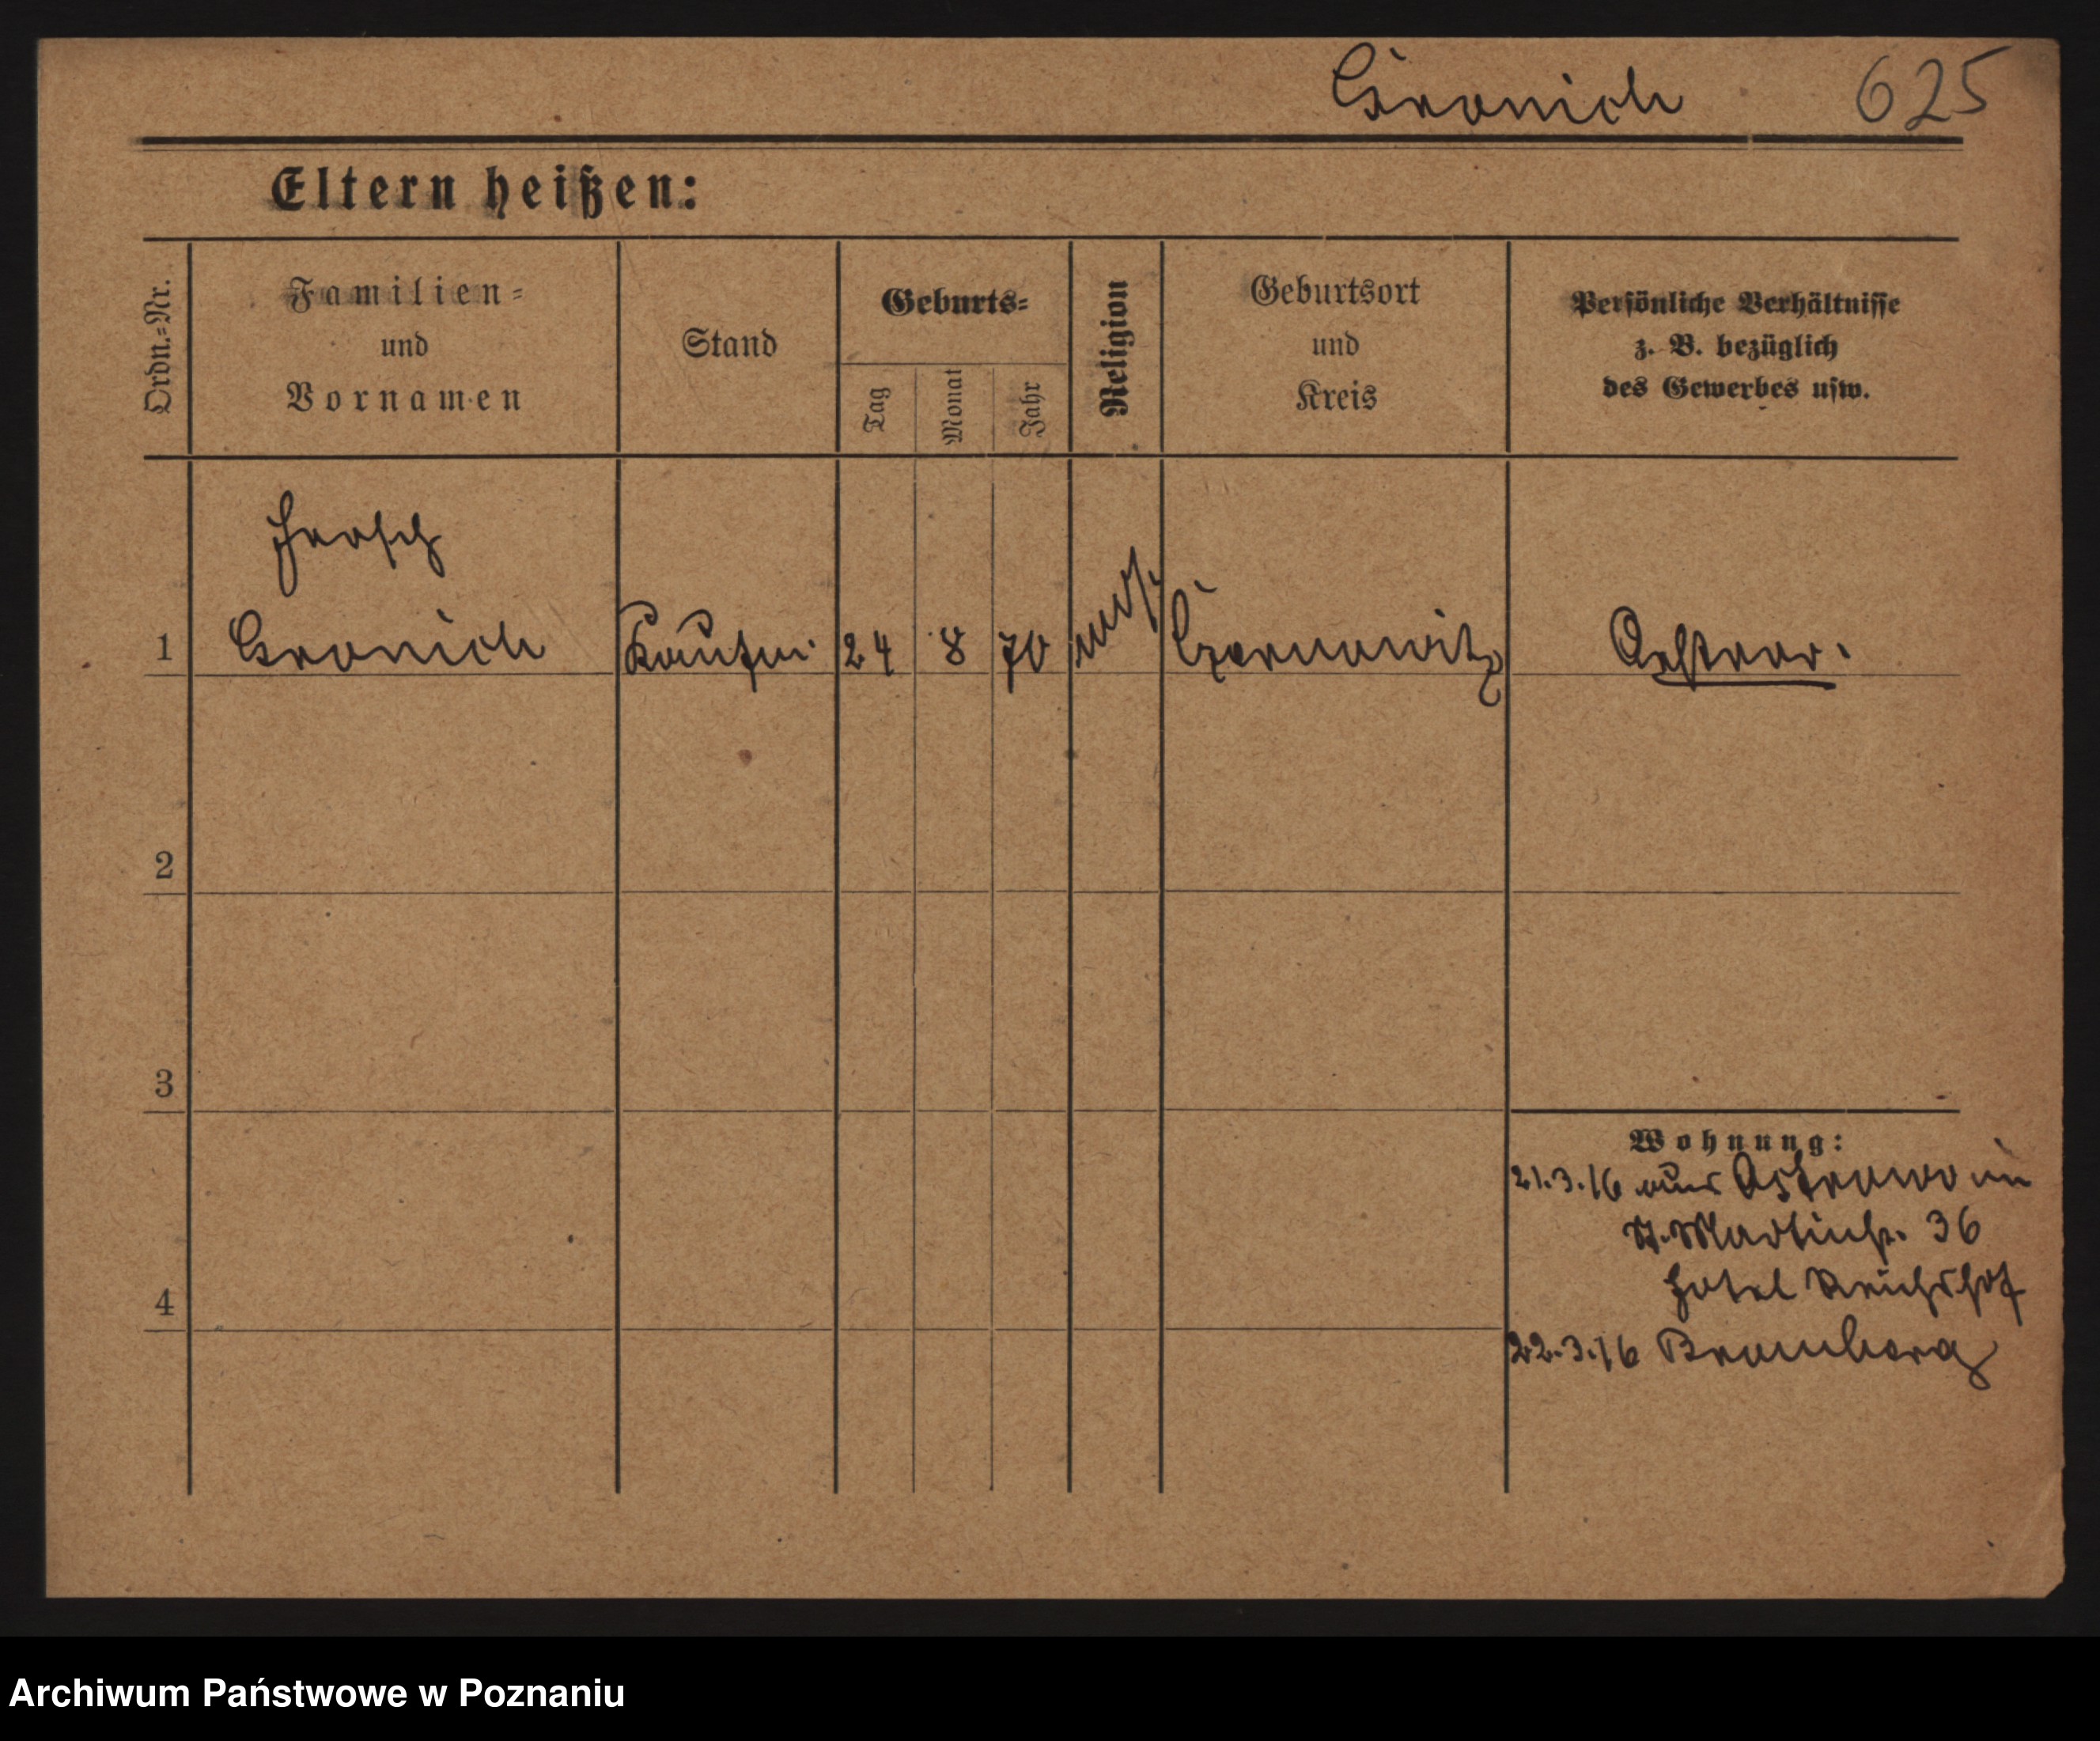 Gronich 625
Eltern heißen:
Ordn.-Nr.
Familien-
und
Vornamen
Stand
Geburts-
Tag
Monat
Jahr
Religion
Geburtsort
und
Kreis
Persönliche Verhältnisse
z. B. bezüglich
des Gewerbes usw.
Hersch
1 Gronich Kaufm. 24 8 70 mos. Czernowitz Oestrr.
2
3
Wohnung:
21.3.16 aus Ostrowo in
St. Martinstr. 36
Hotel Reichshof
4
22.3.16 Bromberg
Archiwum Państwowe w Poznaniu